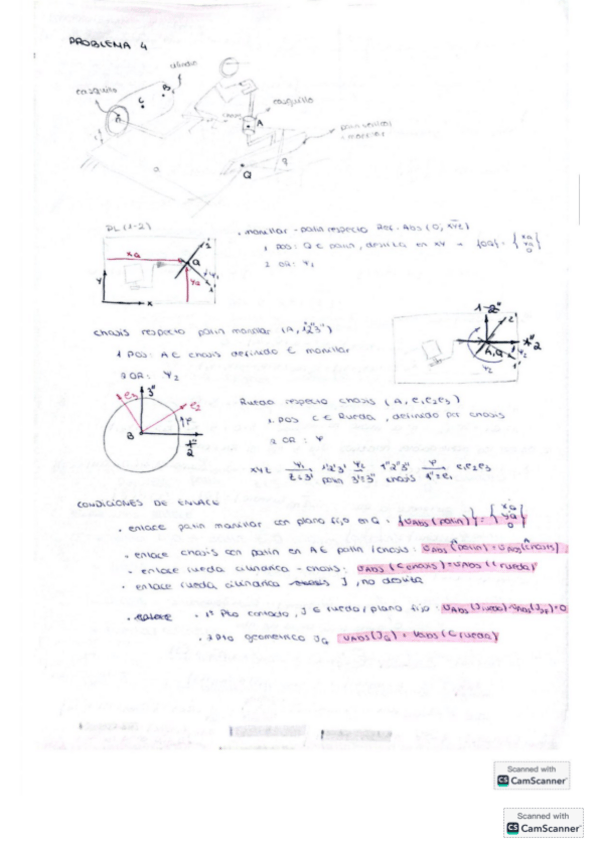 PROBLEMA 4
cilindro
casquillo
B
C
casquillo
A
Q
PL (1-2)
• manillar - patin respecto Ref. Abs (O, xyz)
1 pos: Q ∈ patin, desliza en xy → {OQ} = { xQ yQ 0 }
2 OR: Ψ1
xQ
Q
yQ
Y
X
chasis respecto patin manillar (A, 1"2"3")
1 POS: A ∈ chasis definido ∈ manillar
2 OR: Ψ2
A,Q
Ψ2
e3
3"
e2
B
φ
Rueda respecto chasis (A, e1e2e3)
1. POS C ∈ Rueda, definido por chasis
2 OR: φ
xyz Ψ1 1'2'3' Ψ2 1"2"3" φ e1e2e3
z≡3' patin 3'≡3" chasis 1"≡e1
CONDICIONES DE ENLACE
• enlace patin manillar con plano fijo en Q = {vABS (patin)} = { xQ yQ 0 }
• enlace chasis con patin en A ∈ patin / chasis: vABS (patin) = vABS (chasis)
• enlace rueda cilindrica - chasis: vABS (C chasis) = vABS (C rueda)
• enlace rueda cilindrica J, no desliza
• 1º Pto contacto, J ∈ rueda / plano fijo: vABS (J rueda) = vABS (J PF) = 0
• 2 Pto geometrico JG vABS (JG) = vABS (C rueda)
Scanned with
CS CamScanner
Scanned with
CS CamScanner